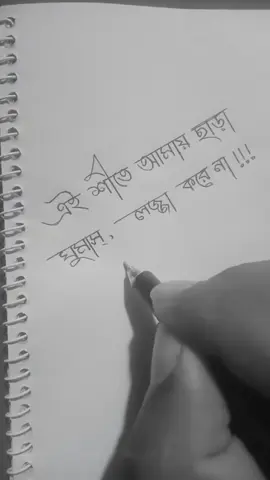 এই শীতে আমায় ছাড়া
ঘুমাস, লজ্জা করে না !!!